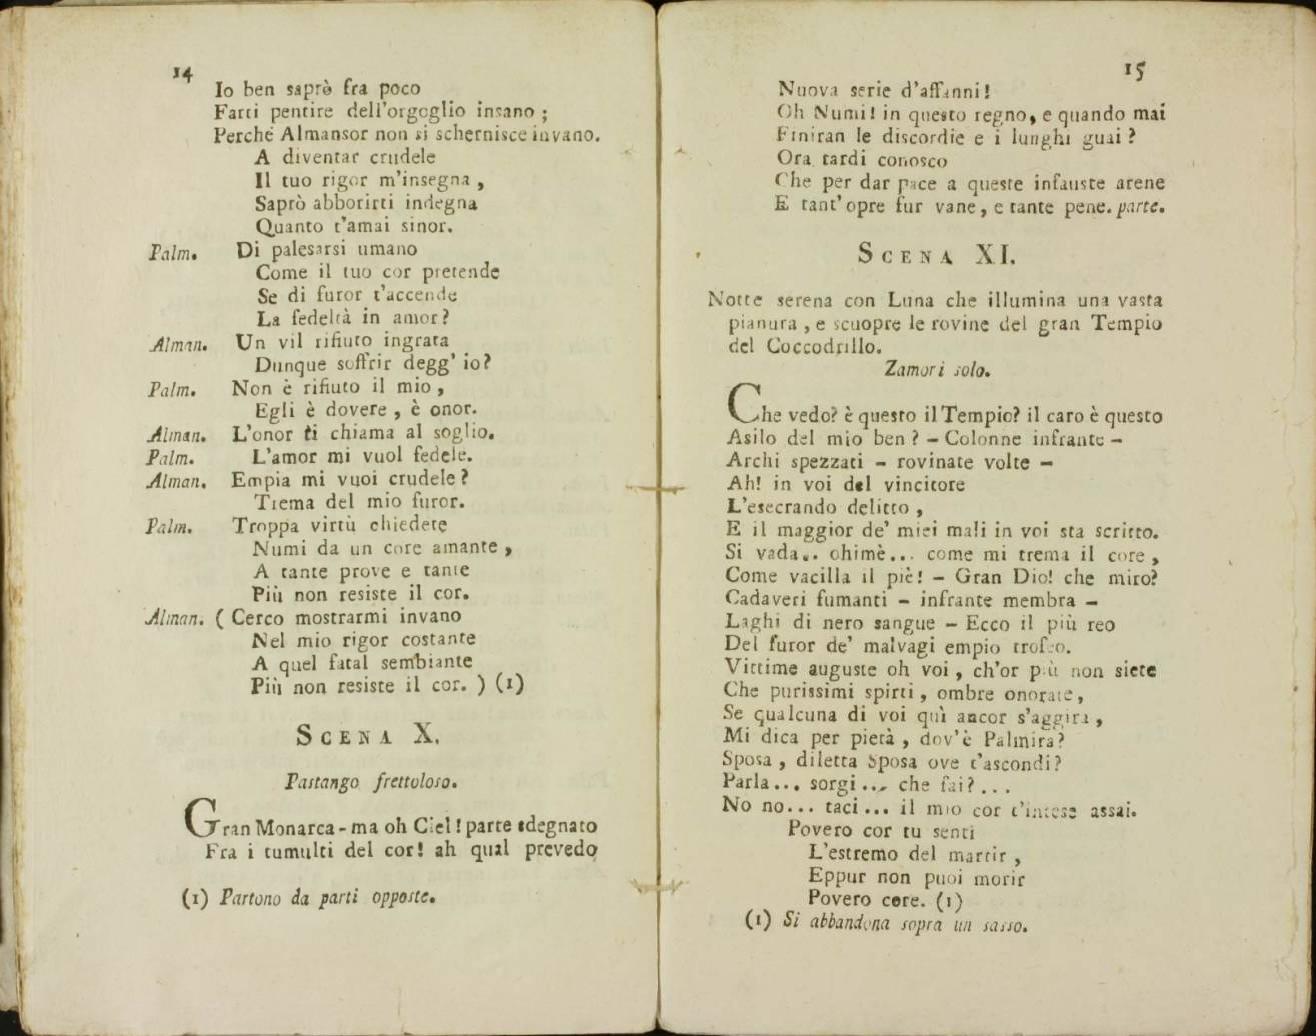 14
Io ben saprò fra poco
Farti pentire dell'orgoglio insano ;
Perché Almansor non si schernisce invano.
A diventar crudele
Il tuo rigor m'insegna ,
Saprò abborirti indegna
Quanto t'amai sinor.
Palm. Di palesarsi umano
Come il tuo cor pretende
Se di furor t'accende
La fedeltà in amor?
Alman. Un vil rifiuto ingrata
Dunque soffrir degg' io?
Palm. Non è rifiuto il mio ,
Egli è dovere , è onor.
Alman. L'onor ti chiama al soglio.
Palm. L'amor mi vuol fedele.
Alman. Empia mi vuoi crudele?
Trema del mio furor.
Palm. Troppa virtù chiedete
Numi da un core amante ,
A tante prove e tante
Più non resiste il cor.
Alman. ( Cerco mostrarmi invano
Nel mio rigor costante
A quel fatal sembiante
Più non resiste il cor. ) (1)
SCENA X.
Pastango frettoloso.
Gran Monarca - ma oh Ciel! parte sdegnato
Fra i tumulti del cor! ah qual prevedo
(1) Partono da parti opposte.
15
Nuova serie d'affanni!
Oh Numi! in questo regno, e quando mai
Finiran le discordie e i lunghi guai?
Ora tardi conosco
Che per dar pace a queste infauste arene
E tant' opre fur vane, e tante pene. parte.
SCENA XI.
Notte serena con Luna che illumina una vasta
pianura , e scuopre le rovine del gran Tempio
del Coccodrillo.
Zamori solo.
Che vedo? è questo il Tempio? il caro è questo
Asilo del mio ben? - Colonne infrante -
Archi spezzati - rovinate volte -
Ah! in voi del vincitore
L'esecrando delitto ,
E il maggior de' miei mali in voi sta scritto.
Si vada.. ohimè... come mi trema il core ,
Come vacilla il piè! - Gran Dio! che miro?
Cadaveri fumanti - infrante membra -
Laghi di nero sangue - Ecco il più reo
Del furor de' malvagi empio trofeo.
Vittime auguste oh voi , ch'or più non siete
Che purissimi spirti , ombre onorate,
Se qualcuna di voi quì ancor s'aggira ,
Mi dica per pietà , dov'è Palmira?
Sposa , diletta Sposa ove t'ascondi?
Parla... sorgi... che fai?...
No no... taci... il mio cor t'intese assai.
Povero cor tu senti
L'estremo del martir ,
Eppur non puoi morir
Povero core. (1)
(1) Si abbandona sopra un sasso.